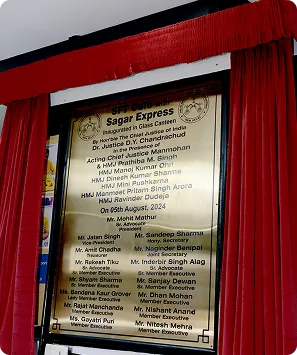 Sagar Express
Inaugurated in Glass Canteen
By Hon'ble The Chief Justice of India
Dr. Justice D.Y. Chandrachud
in the Presence of
Acting Chief Justice Manmohan
& HMJ Prathiba M. Singh
HMJ Manoj Kumar Ohri
HMJ Dinesh Kumar Sharma
HMJ Mini Pushkarna
HMJ Manmeet Pritam Singh Arora
HMJ Ravinder Dudeja
On 05th August, 2024
Mr. Mohit Mathur
Sr. Advocate
President
Mr. Jatan Singh
Vice-President
Mr. Sandeep Sharma
Hony. Secretary
Mr. Amit Chadha
Treasurer
Mr. Naginder Benipal
Joint Secretary
Mr. Rakesh Tiku
Sr. Advocate
Sr. Member Executive
Mr. Inderbir Singh Alag
Sr. Advocate
Sr. Member Executive
Mr. Shyam Sharma
Sr. Member Executive
Mr. Sanjay Dewan
Sr. Member Executive
Ms. Bandana Kaur Grover
Lady Member Executive
Mr. Dhan Mohan
Member Executive
Mr. Rajat Manchanda
Member Executive
Mr. Nishant Anand
Member Executive
Ms. Gayatri Puri
Member Executive
Mr. Nitesh Mehra
Member Executive